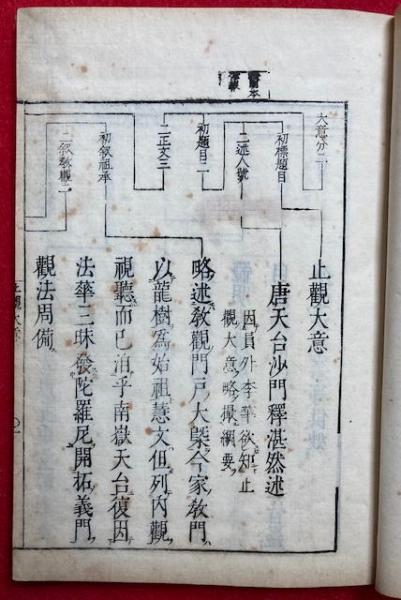 大意分二
初標題目
二述人號
初題目二
二正文三
初叙祖承
二叙教觀二
止觀大意
唐天台沙門釋湛然述
因員外李華欲知止
觀大意略撮綱要
略述教觀門戶大槩今家教門
以龍樹爲始祖慧文但列內觀
視聽而已洎乎南嶽天台復因
法華三昧發陀羅尼開拓義門
觀法周備
止觀大意